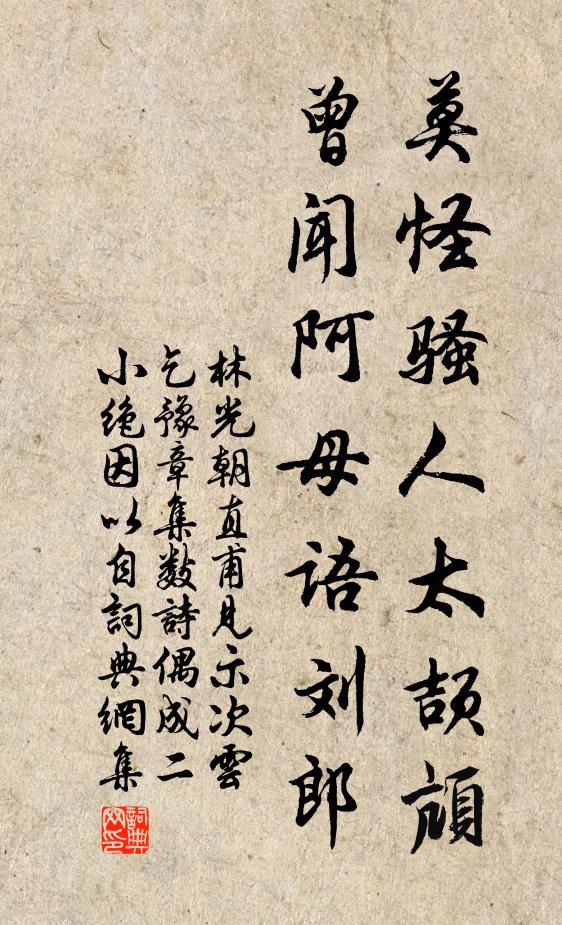 莫怪骚人太颉颃
曾闻阿母语刘郎
林光朝直甫見示次雲
乞豫章集数詩偶成二
小絶因以自詞典網集
詞典網印